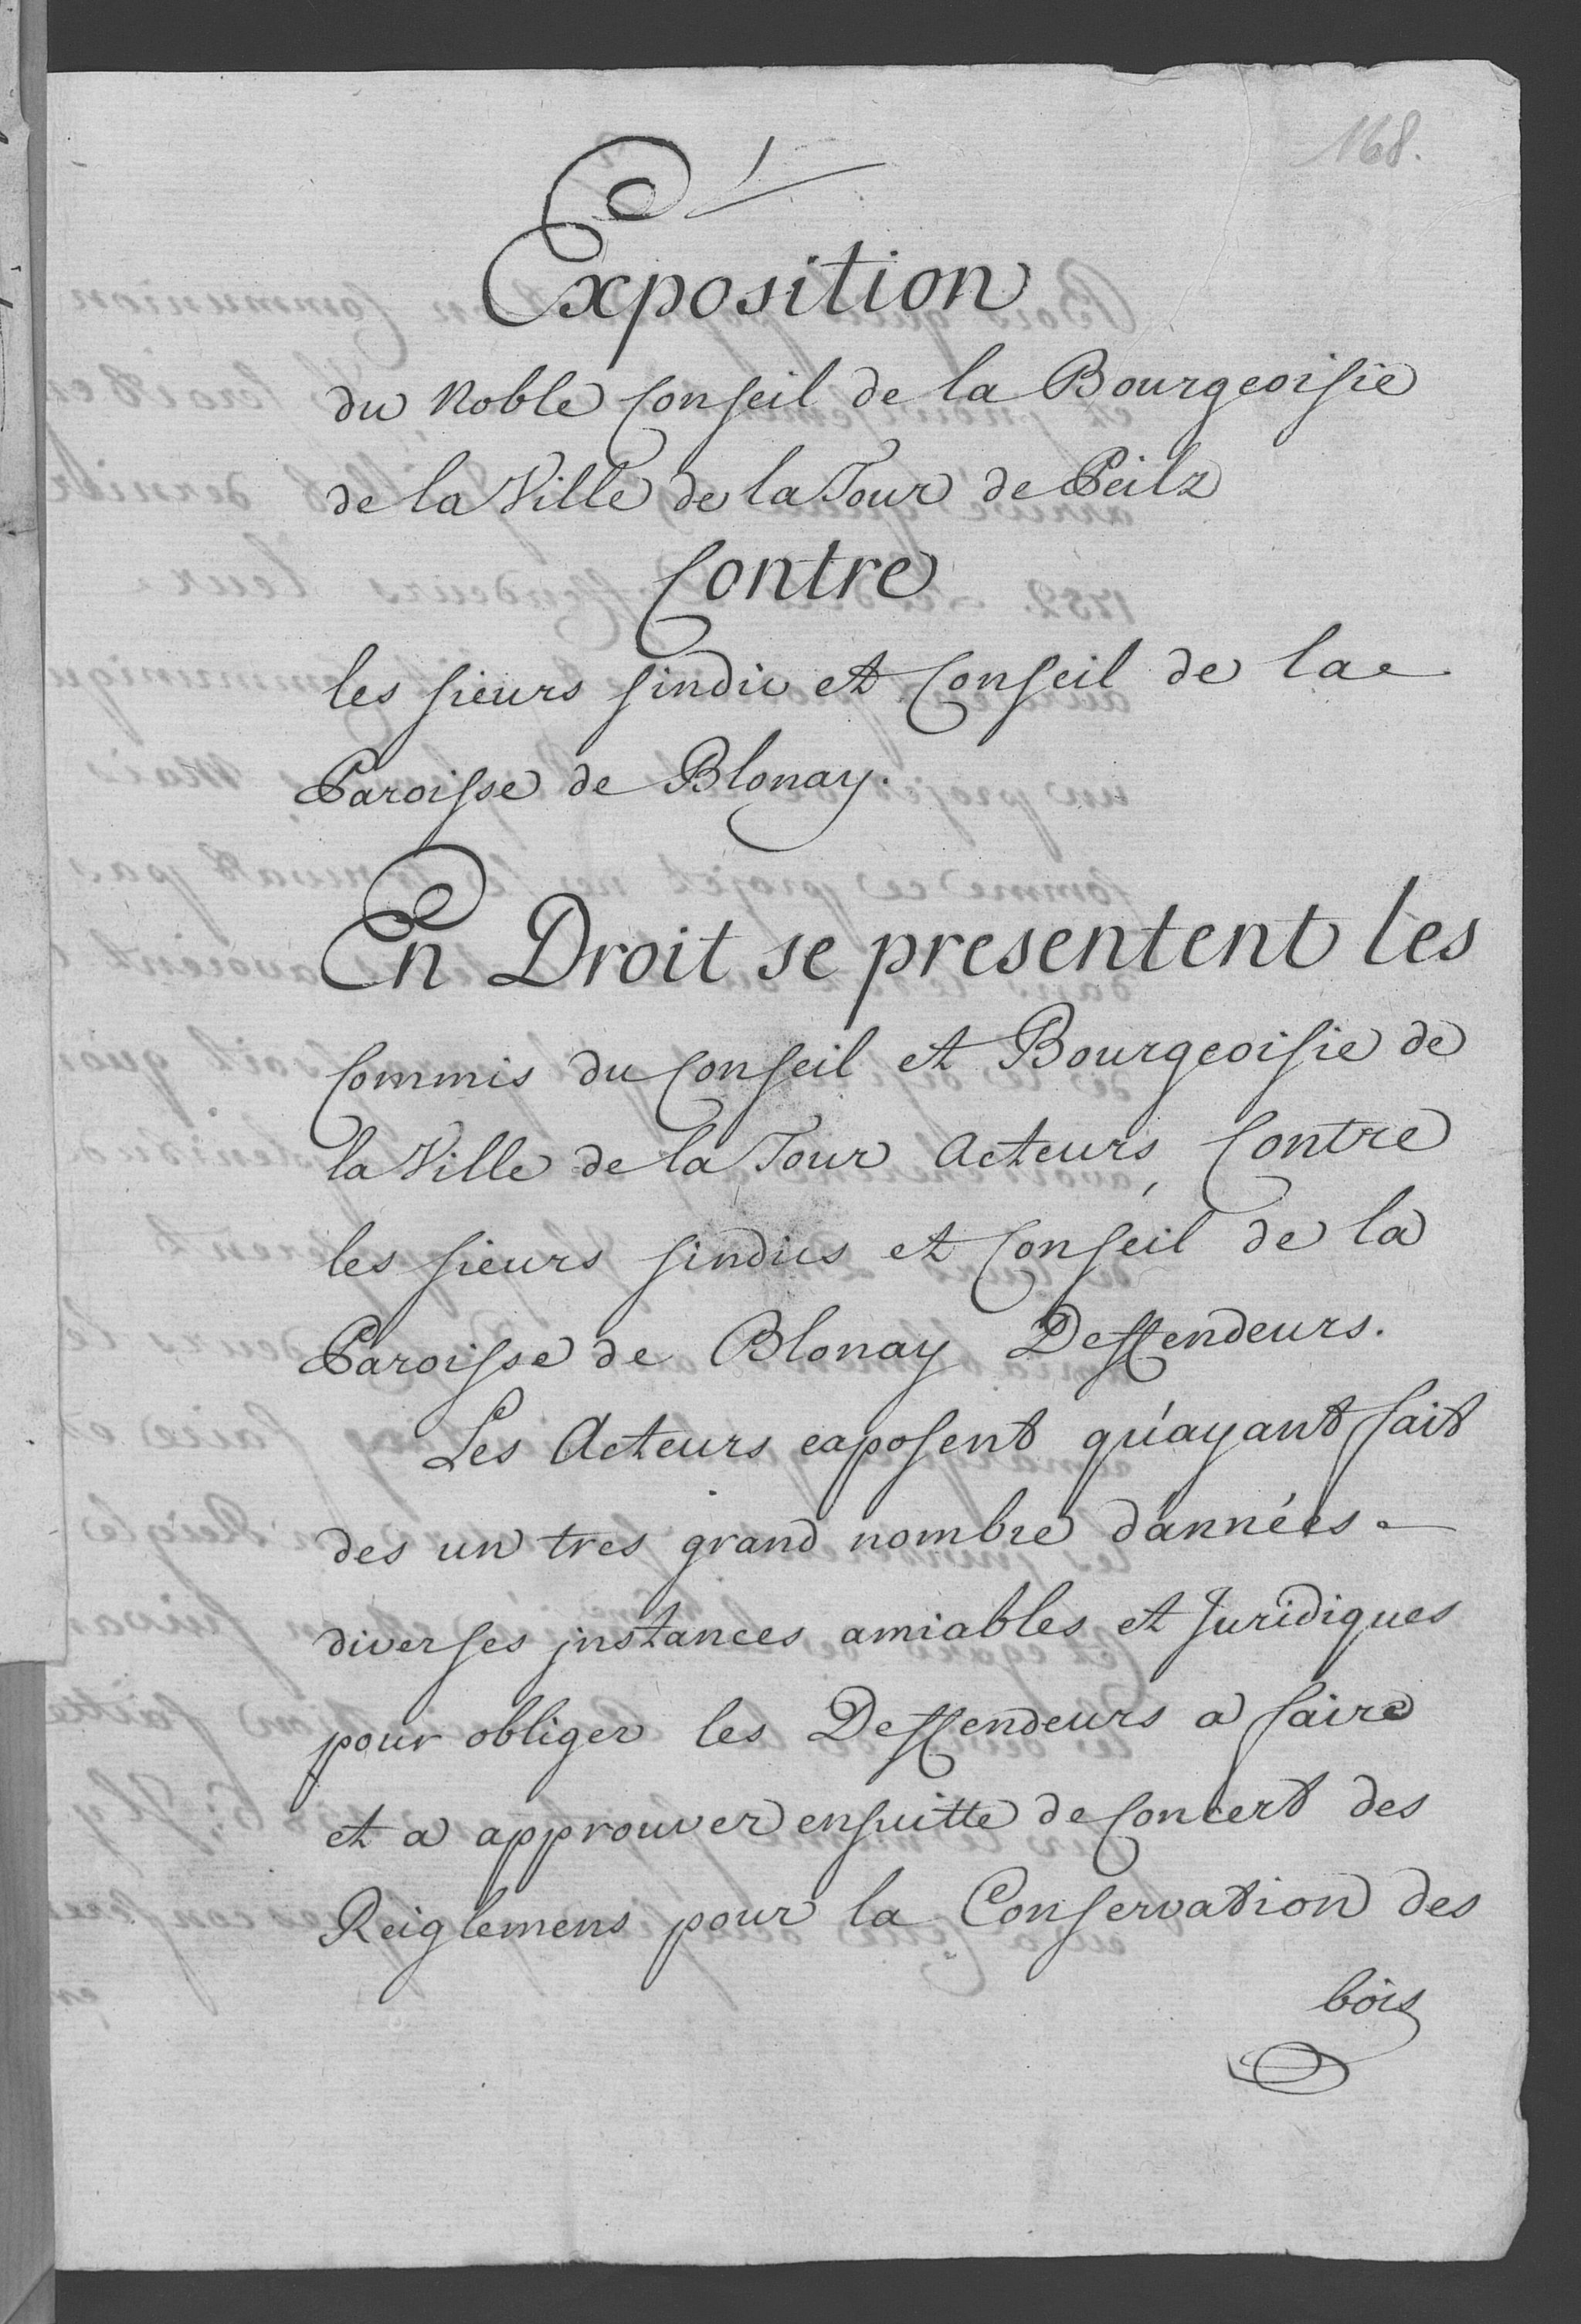 168.
Exposition
du Noble Conseil de la Bourgeoisie
de la Ville de la Tour de Peilz
Contre
les sieurs sindic et Conseil de la
Paroisse de Blonay.
En Droit se presentent les
Commis du Conseil et Bourgeoisie de
la Ville de la Tour Acteurs, Contre
les sieurs sindics et Conseil de la
Paroisse de Blonay Deffendeurs.
Les Acteurs exposent qu'ayant fait
des un tres grand nombre d'années
diverses instances amiables et Juridiques
pour obliger les Deffendeurs a faire
et a approuver ensuitte de Concert des
Reiglemens pour la Conservation des
bois